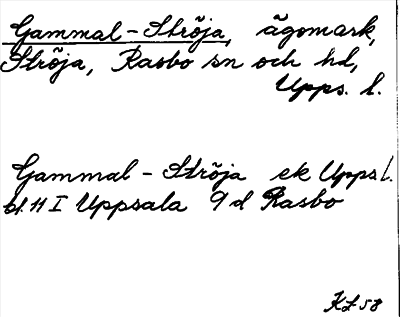 Gammal-Ströja, ägomark,
Ströja, Rasbo sn och hd,
Upps. l.
Gammal-Ströja ek Upps l.
bl. 11 I Uppsala 9 d Rasbo
KL 58